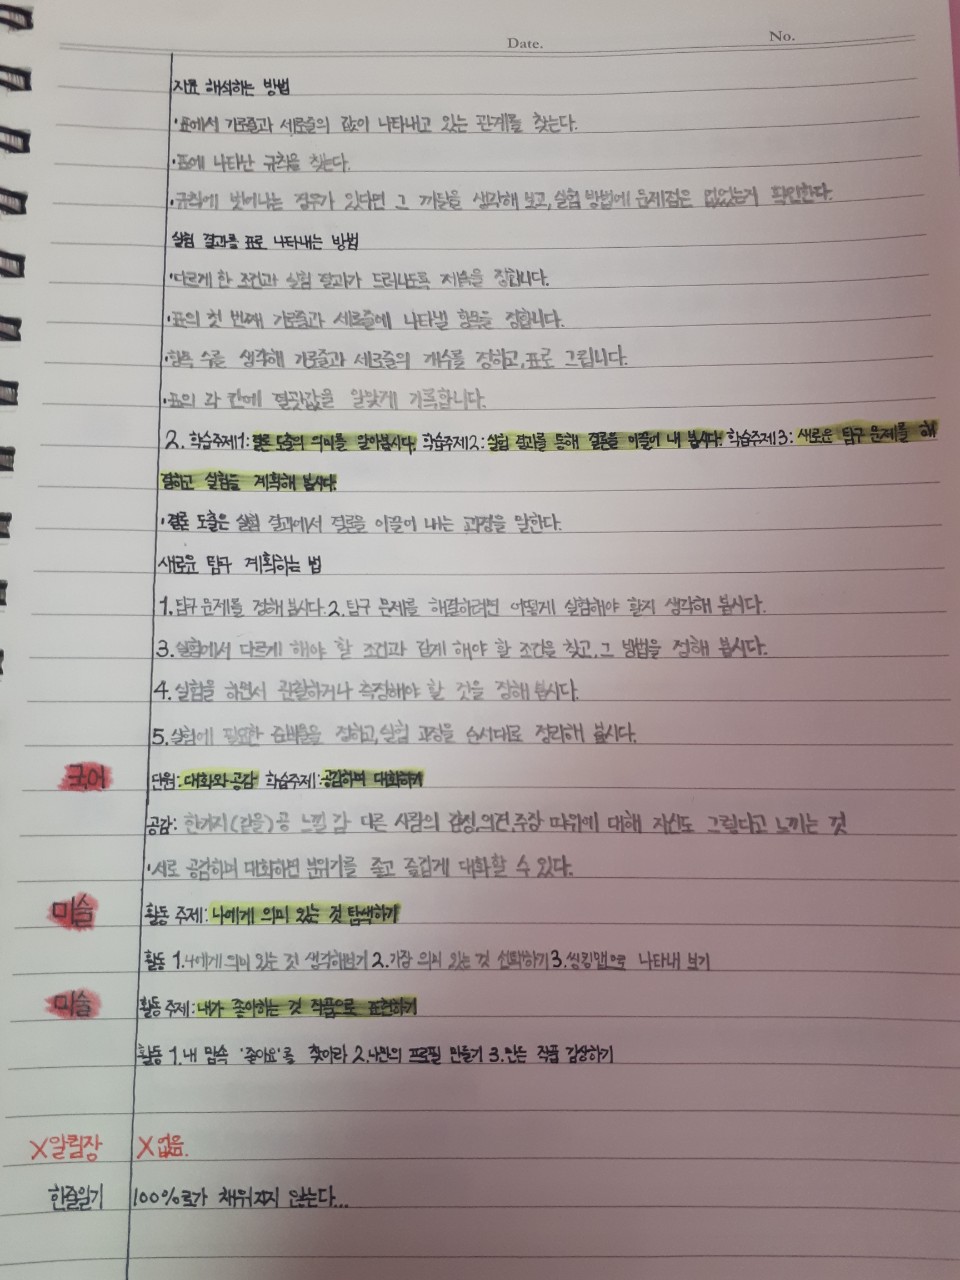 Date. No.
자료 해석하는 방법
·표에서 가로줄과 세로줄의 값이 나타내고 있는 관계를 찾는다.
·표에 나타난 규칙을 찾는다.
·규칙에 벗어나는 경우가 있다면 그 까닭을 생각해 보고, 실험 방법에 문제점은 없었는지 확인한다.
실험 결과를 표로 나타내는 방법
·다르게 한 조건과 실험 결과가 드러나도록 제목을 정합니다.
·표의 첫 번째 가로줄과 세로줄에 나타낼 항목을 정합니다.
·항목 수를 생각해 가로줄과 세로줄의 개수를 정하고, 표로 그립니다.
·표의 각 칸에 결괏값을 알맞게 기록합니다.
2. 학습주제1: 결론 도출의 의미를 알아봅시다. 학습주제2: 실험 결과를 통해 결론을 이끌어 내 봅시다. 학습주제3: 새로운 탐구 문제를 해
결하고 실험을 계획해 봅시다.
·결론 도출은 실험 결과에서 결론을 이끌어 내는 과정을 말한다.
새로운 탐구 계획하는 법
1. 탐구 문제를 정해 봅시다. 2. 탐구 문제를 해결하려면 어떻게 실험해야 할지 생각해 봅시다.
3. 실험에서 다르게 해야 할 조건과 같게 해야 할 조건을 찾고, 그 방법을 정해 봅시다.
4. 실험을 하면서 관찰하거나 측정해야 할 것을 정해 봅시다.
5. 실험에 필요한 준비물을 정하고, 실험 과정을 순서대로 정리해 봅시다.
국어 단원: 대화와 공감 학습주제: 공감하며 대화하기
공감: 한가지(같을) 공 느낄 감 다른 사람의 감정, 의견, 주장 따위에 대해 자신도 그렇다고 느끼는 것
·서로 공감하며 대화하면 분위기를 좋고 즐겁게 대화할 수 있다.
미술 활동 주제: 나에게 의미 있는 것 탐색하기
활동 1. 나에게 의미 있는 것 생각해보기 2. 가장 의미 있는 것 선택하기 3. 씽킹맵으로 나타내 보기
미술 활동 주제: 내가 좋아하는 것 작품으로 표현하기
활동 1. 내 맘속 '좋아요'를 찾아라 2. 나만의 프로필 만들기 3. 만든 작품 감상하기
X알림장 X없음.
한줄일기 100%로가 채워지지 않는다...